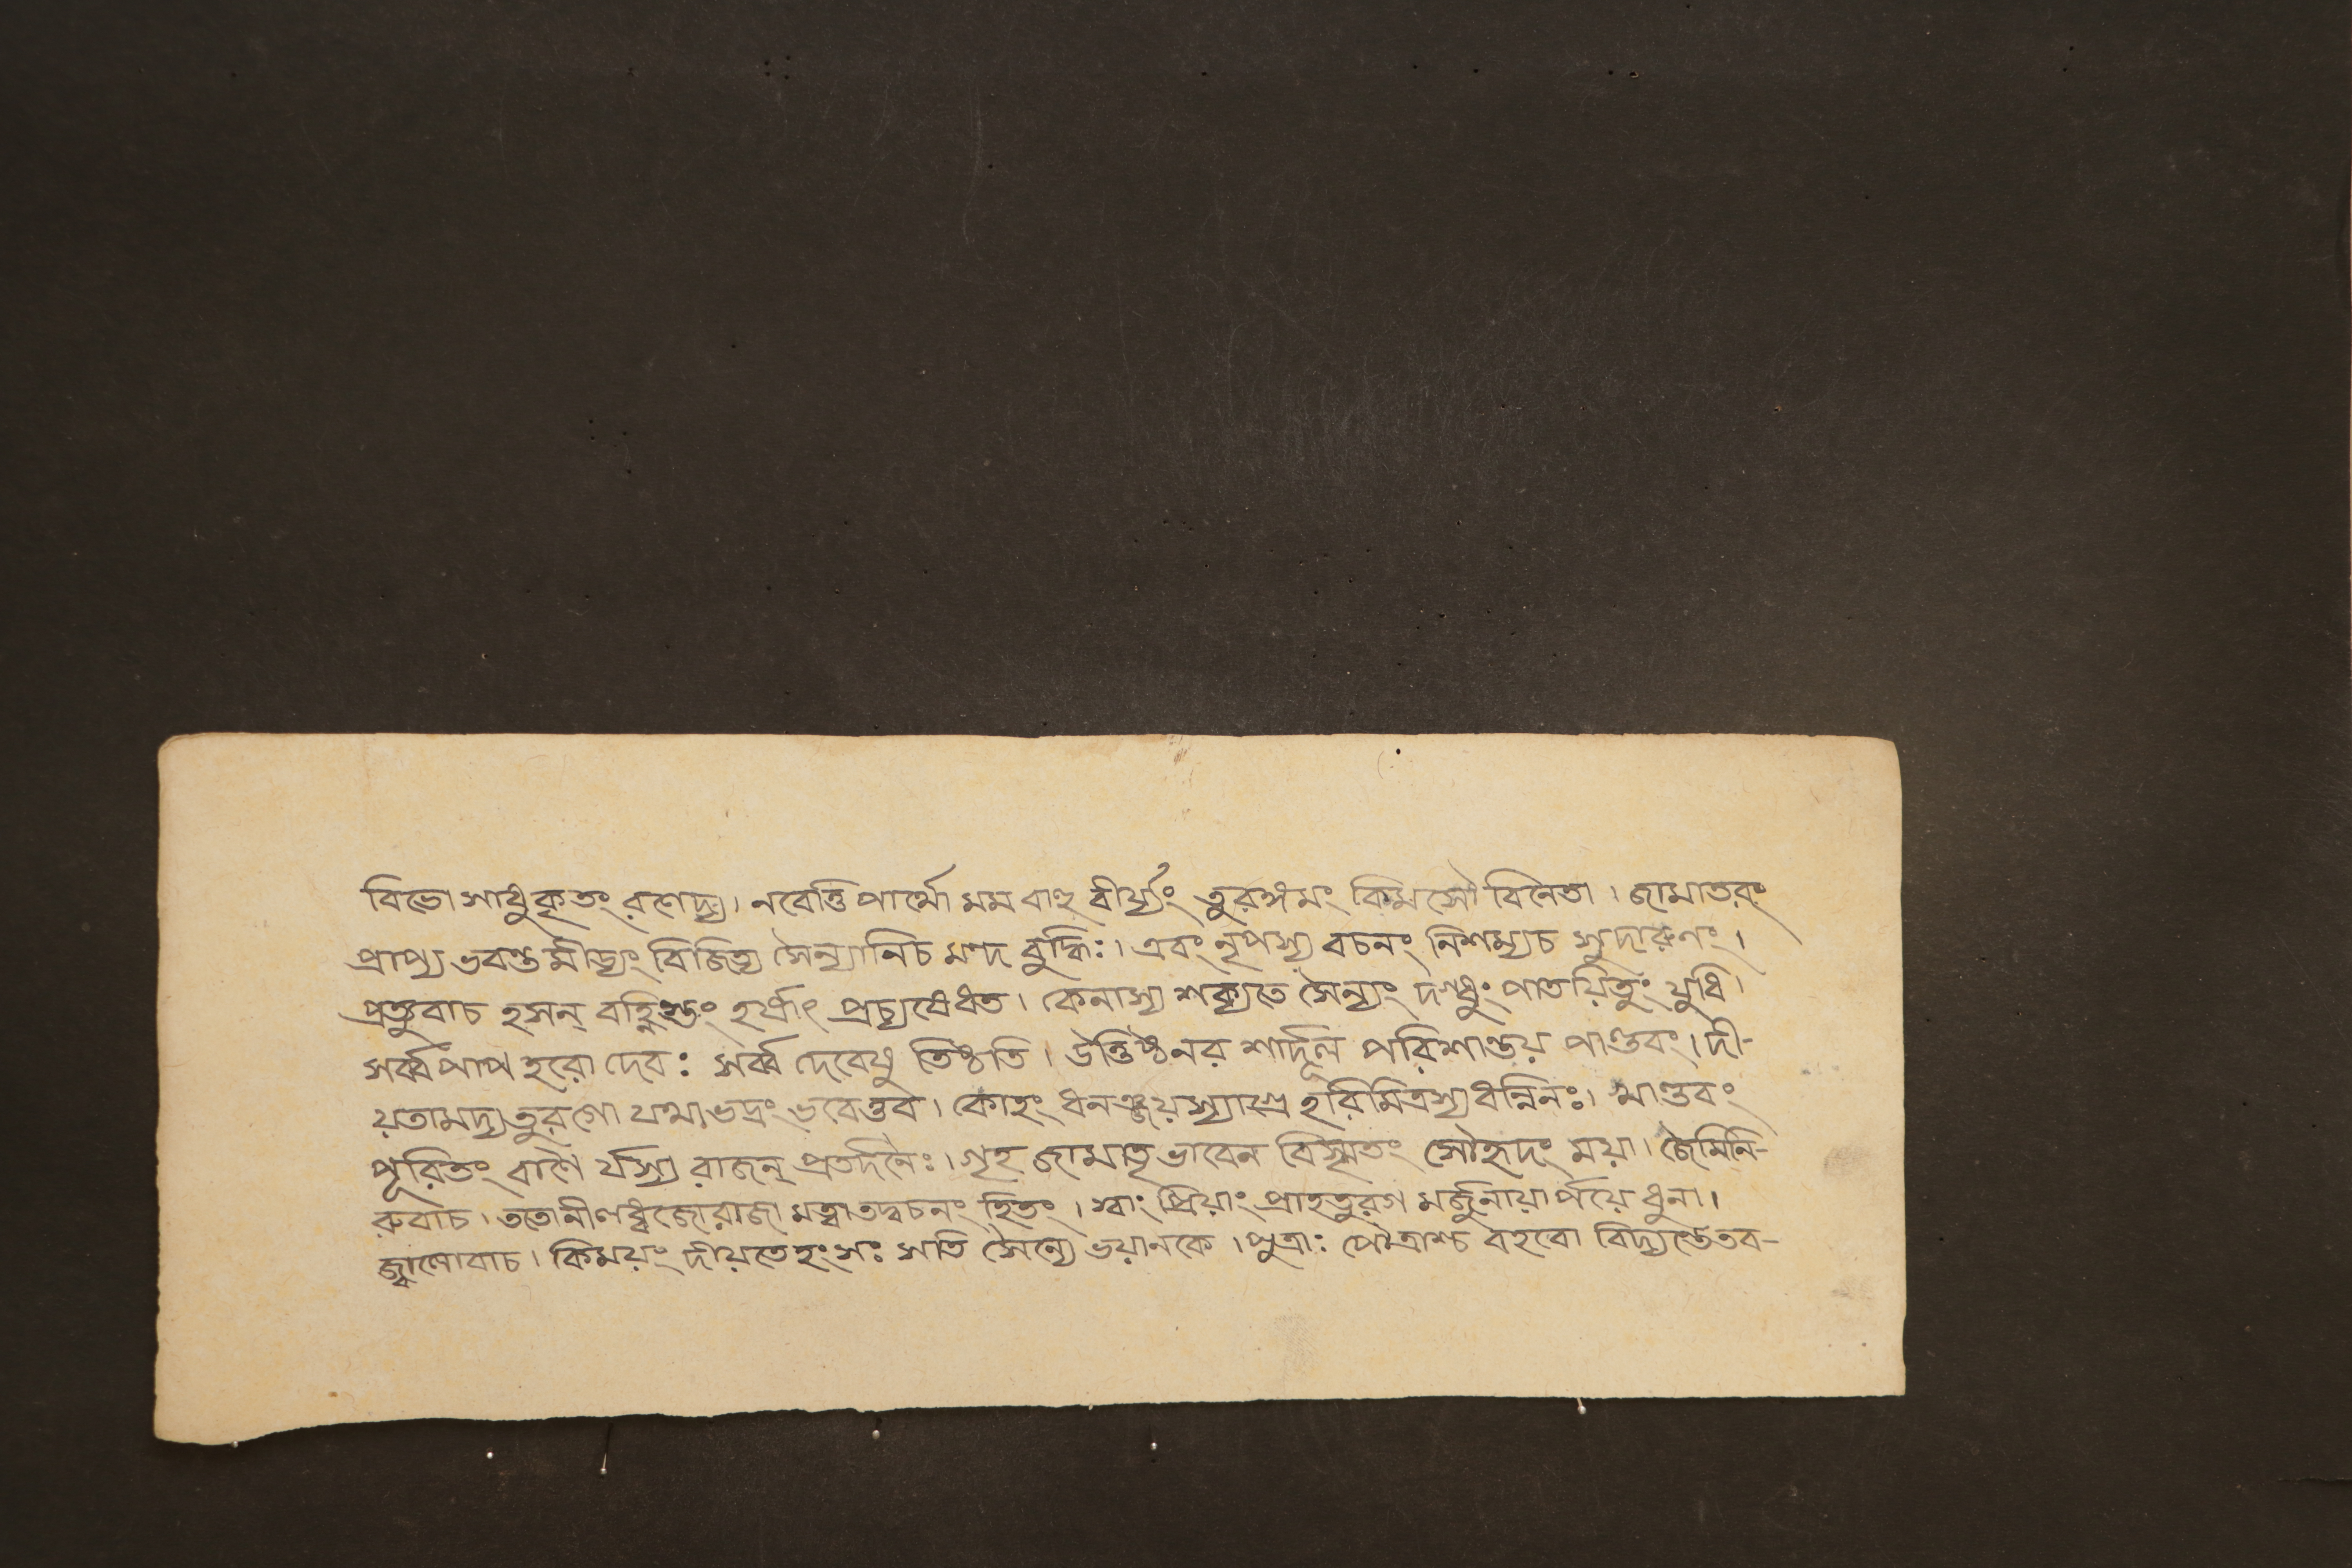 বিভো সাধু কৃতং রণেদ্য। নবেত্তি পার্থো মম বাহু বীর্য্যং তুরঙ্গমং কিমসৌ বিনেতা। জামাতরং
প্রাপ্য ভবন্ত মীড্যং বিজিত্য সৈন্যানিচ মন্দ বুদ্ধিঃ। এবং নৃপস্য বচনং নিশম্যচ সুদারুণং।
প্রত্যুবাচ হসন্ বহ্নিস্তং হর্ষাৎ প্রচ্যষেধত। কেনাস্য শক্যতে সৈন্যং দগ্ধুং পাতয়িতুং যুধি।
সর্ব্বপাপ হরো দেবঃ সর্ব্ব দেবেষু তিষ্ঠতি। উত্তিষ্ঠনর শার্দূল পরিশান্তয় পাণ্ডবং। দী-
য়তামদ্য তুরগো যস্মাভদ্রং ভবেত্তব। কোহং ধনঞ্জয়স্যাগ্রে হরিমিত্রস্য ধন্বিনঃ। খাণ্ডবং
পূরিতং বাণৈ র্যস্য রাজন্ প্রতর্দনৈঃ। গৃহ জামাতৃ ভাবেন বিস্মৃতং সৌহৃদং ময়া। জৈমিনি-
রুবাচ। ততোনীলধ্বজোরাজা মত্বা তদ্বচনং হিতং। স্বাং প্রিয়াং প্রাহতুরগ মর্জুনায়ার্পয়ে ধুনা।
জ্বালোবাচ। কিময়ং দীয়তে হংসঃ সতি সৈন্যে ভয়ানকে। পুত্রাঃ পৌত্রাশ্চ বহবো বিদ্যন্তেতব-